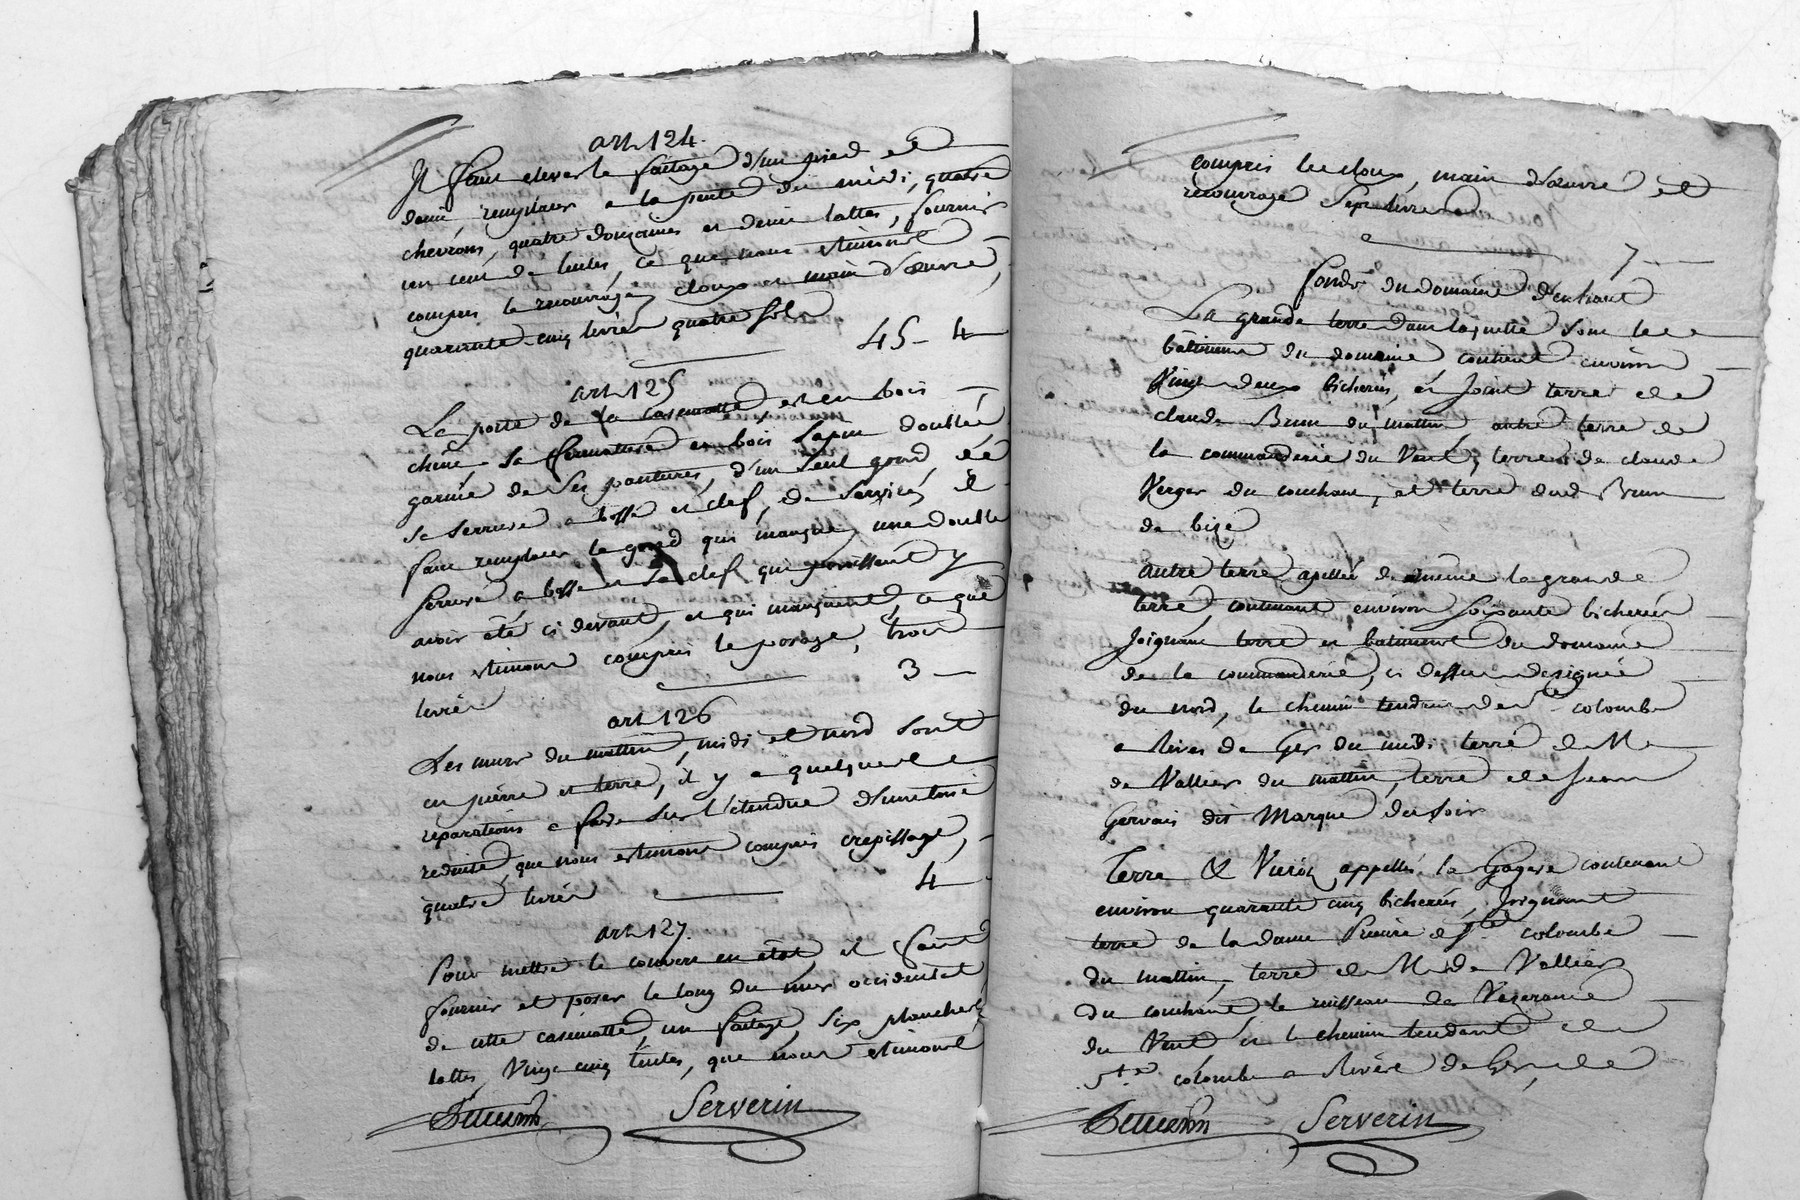 art 124.
Il faut elever le faitage d'un pied et
demi, remplacer a la pente du midi, quatre
chevrons, quatre douzaines et demie lattes, fournir
un cent de tuiles, ce que nous estimons
compris le recouvrage, cloux et main d'œuvre,
quarante-cinq livres quatre sols
45 - 4
art 125
La porte de la casematte est en bois
chêne, sa fermeture en bois sapin doublée
garnie de ses pantures, d'un seul gond, de
sa serrure a bosse et clef, de service, il
faut remplacer le gond qui manque, une double
serrure a bosse et sa clef qui paroissent y
avoir été ci devant, et qui manquent, ce que
nous estimons compris le posage, trois
livres
3
art 126
Les murs du mattin, midi et nord sont
en pierre et terre, il y a quelques
reparations a faire sur l'étendue d'une toise
reduite, que nous estimons compris crepissage,
quatre livres
4
art 127.
Pour mettre le couvert en état, il faut
fournir et poser le long du mur occidental
de cette casematte, un faitage, six planches,
lattes, vingt cinq tuiles, que nous estimons
Serverin
compris les cloux, main d'œuvre et
recouvrage sept livres
7
fonds du domaine d'en haut
La grande terre dans laquelle sont les
bâtiments du domaine, contient environ
vingt deux bicherées, et joint terre de
claude Brun du mattin, autre terre de
la commanderie du vent, terre de claude
Verger du couchant, et terre dud Brun
de bize
autre terre apellée de même la grande
terre, contenant environ soixante bicherées
joignant terre et batiment du domaine
de la commanderie, ci dessus designée
du nord, le chemin tendant de Ste colombe
a Rives de Ger du midi, terre de M.
de Vallier du mattin, terre de Jean
Gervais dit Marque du soir
Terre & appellés la Gagere contenant
environ quarante cinq bicherées, joignant
terre de la dame Prieure de Ste colombe
du mattin, terre de M de Vallier
du couchant, le ruisseau de Vezerance
du vent et le chemin tendant de
Ste colombe a Rive de Ger, de
Serverin